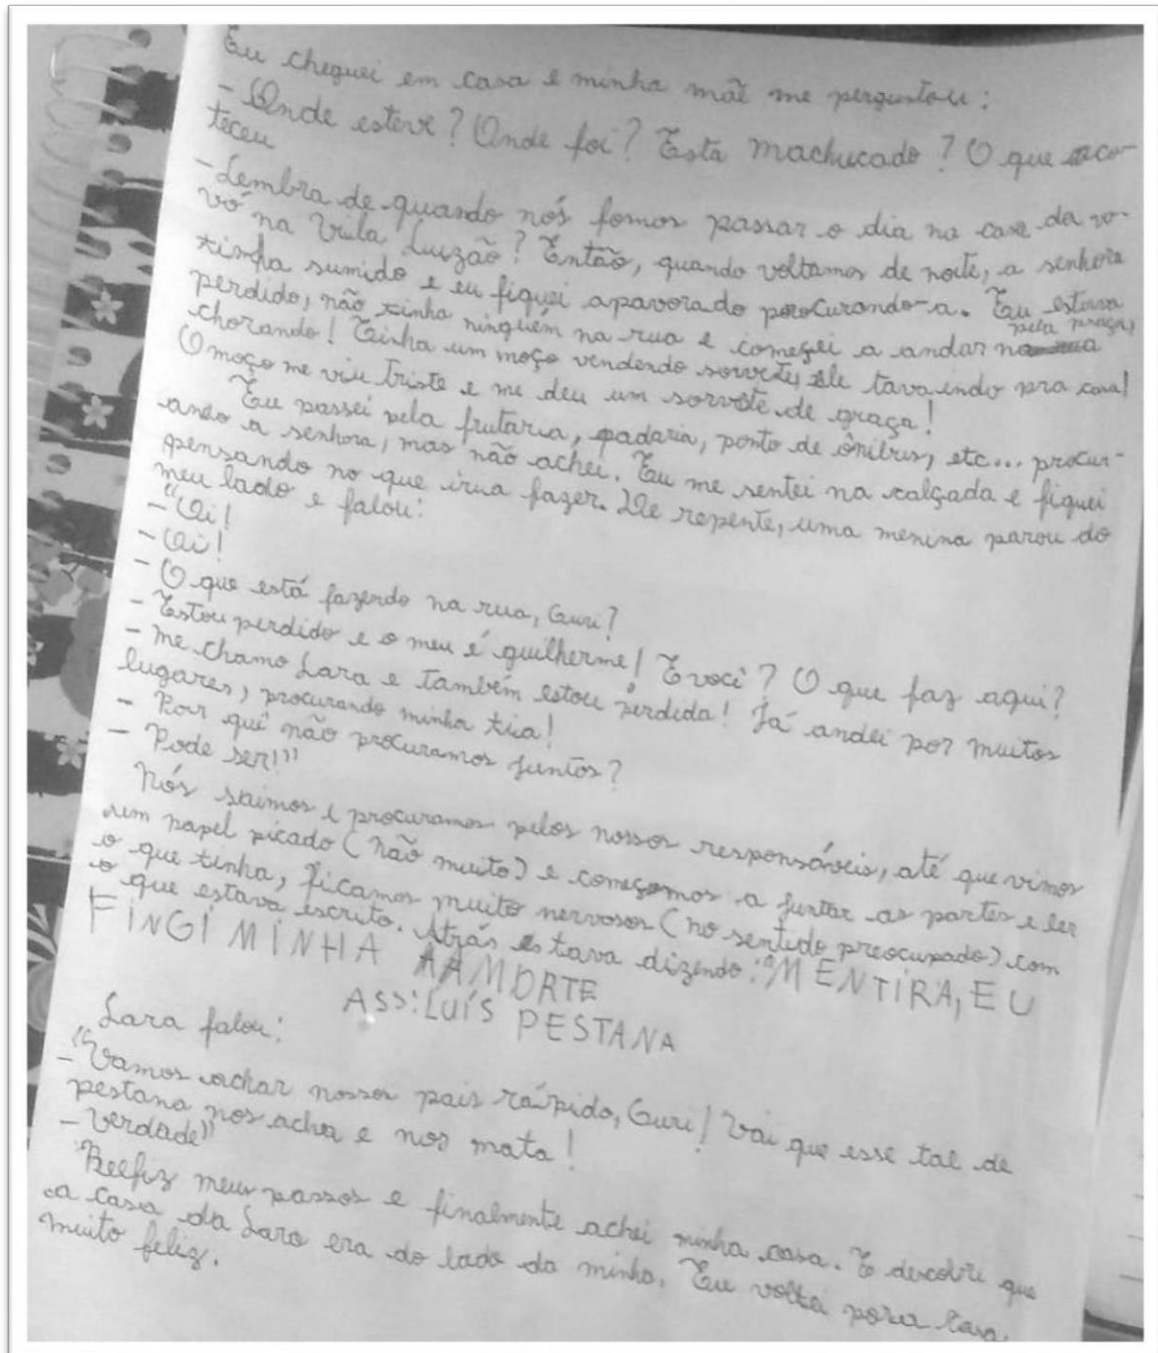 Eu cheguei em casa e minha mãe me perguntou:
- Onde esteve? Onde foi? Esta machucado? O que aco-
teceu
- Lembra de quando nós fomos passar o dia na casa da vo-
vó na Vila Luizão? Então, quando voltamos de noite, a senhora
tinha sumido e eu fiquei apavorado procurando-a. Eu estava
perdido, não tinha ninguém na rua e comecei a andar pela praça,
chorando! Tinha um moço vendendo sorvete, ele tava indo pra casa!
O moço me viu triste e me deu um sorvete de graça!
Eu passei pela frutaria, padaria, ponto de ônibus, etc... procur-
ando a senhora, mas não achei. Eu me sentei na calçada e fiquei
pensando no que irua fazer. De repente, uma menina parou do
meu lado e falou:
-"Oi!
- Oi!
- O que está fazendo na rua, Guri?
- Estou perdido e o meu é guilherme! E você? O que faz aqui?
- me chamo Lara e também estou perdida! Já andei por muitos
lugares, procurando minha tia!
- Por quê não procuramos juntos?
- Pode ser!"
Nós saimos e procuramos pelos nossos responsáveis, até que vimos
um papel picado (não muito) e começamos a juntar as partes e ler
o que tinha, ficamos muito nervosos (no sentido preocupado) com
o que estava escrito. Atrás estava dizendo: "MENTIRA, EU
FINGI MINHA MORTE
ASS: LUÍS PESTANA
Lara falou:
-"Vamos achar nossos pais rápido, Guri! Vai que esse tal de
pestana nos acha e nos mata!
- Verdade"
Reefiz meus passos e finalmente achei minha casa. E descobri que
a casa da Lara era do lado da minha. Eu voltei para casa
muito feliz.